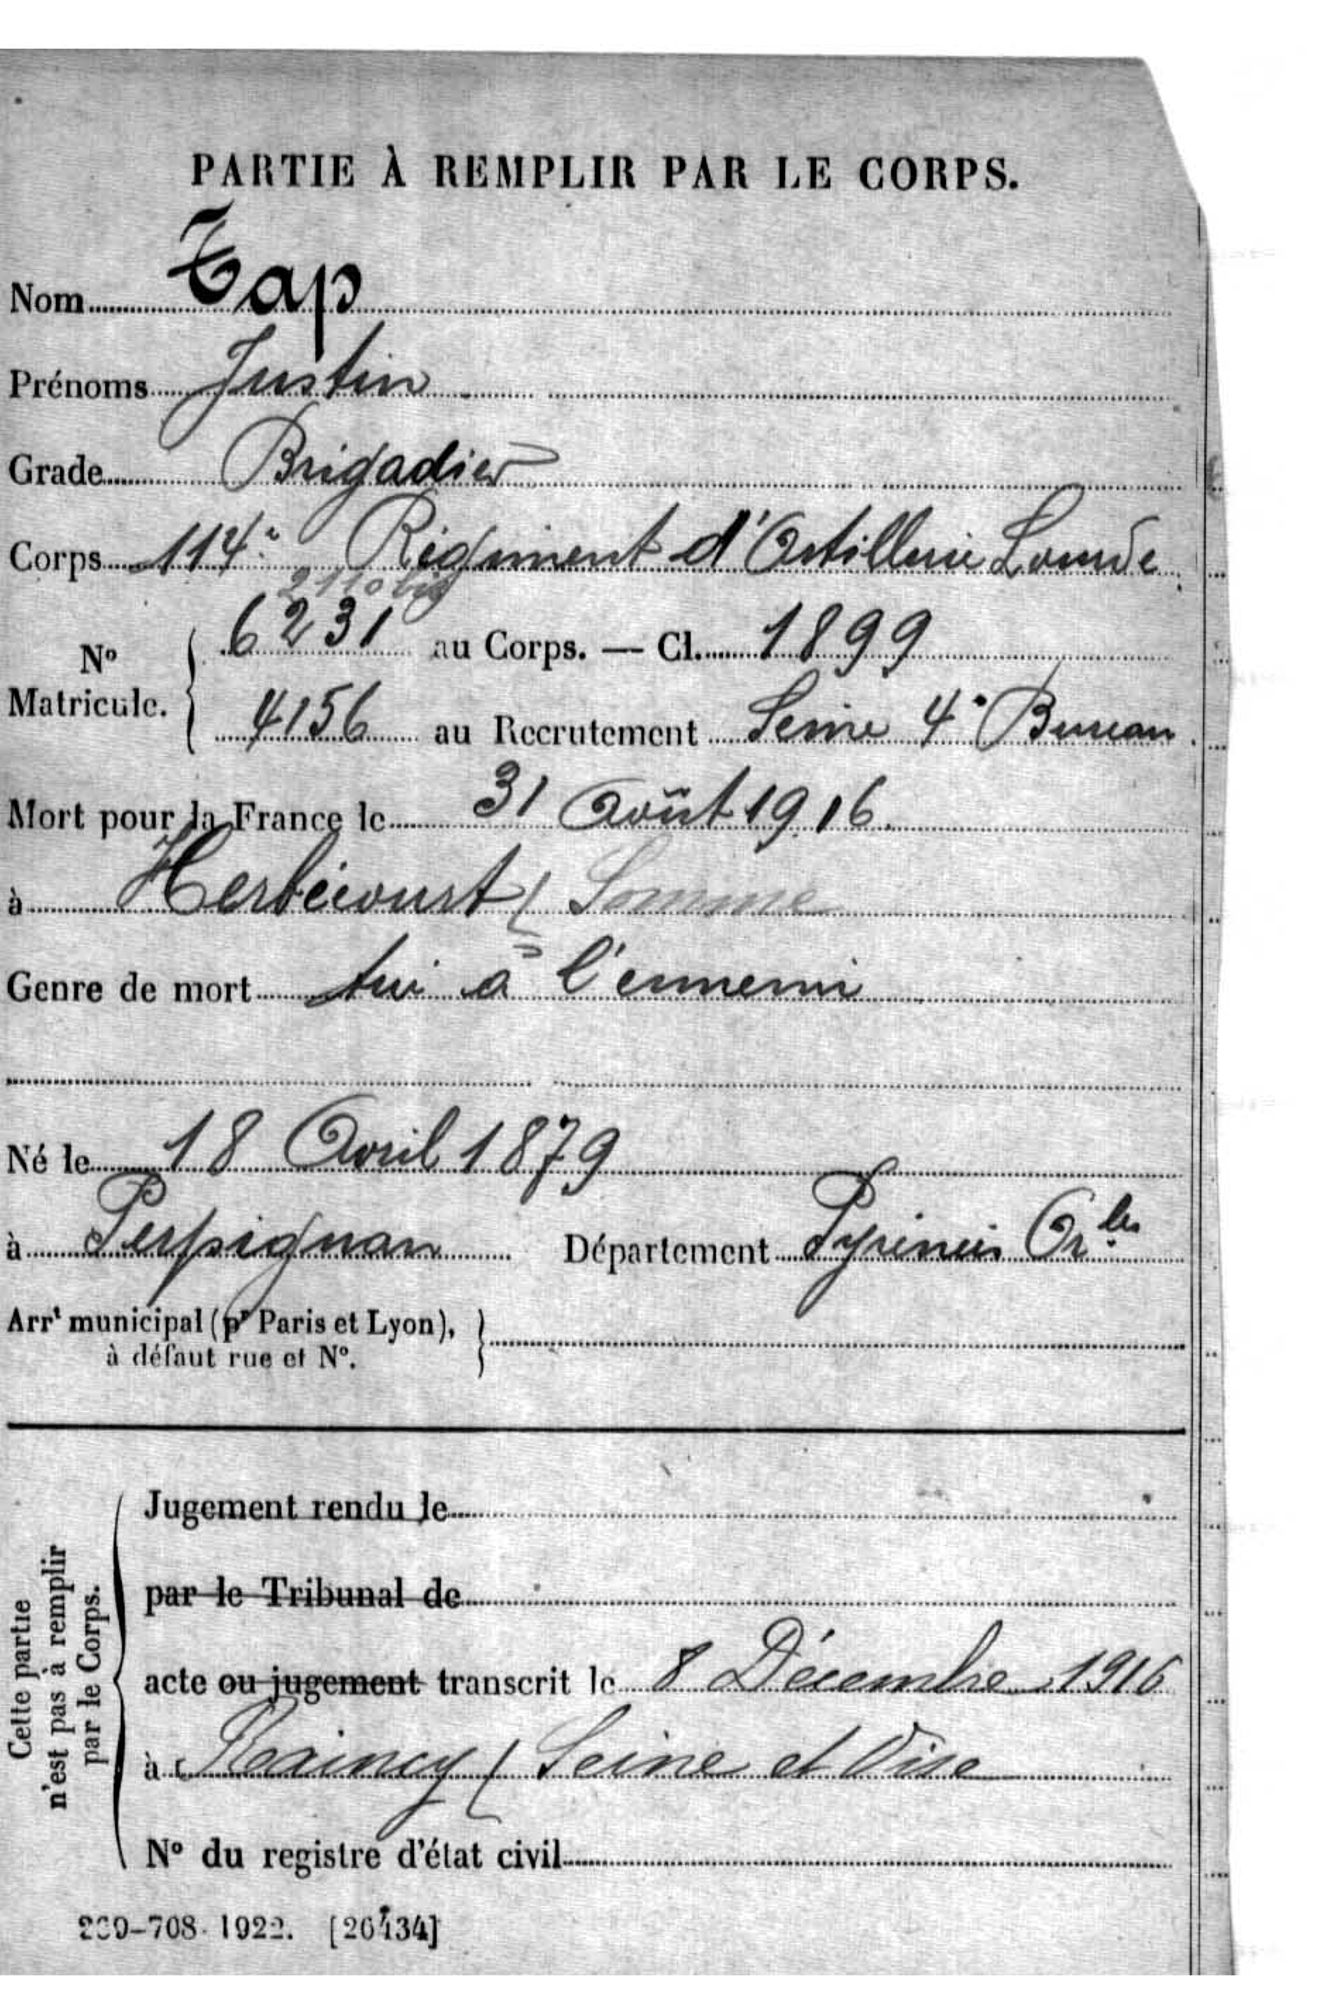 PARTIE À REMPLIR PAR LE CORPS.
Nom Tap
Prénoms Justin
Grade Brigadier
Corps 114e Régiment d'Artillerie Lourde
2110 bis
Nº Matricule. 6231 au Corps. — Cl. 1899
4156 au Recrutement Seine 4e Bureau
Mort pour la France le 31 Août 1916
à Herbécourt (Somme
Genre de mort tué à l'ennemi
Né le 18 Avril 1879
à Perpignan Département Pyrénées Orles
Arrt municipal (pr Paris et Lyon),
à défaut rue et Nº.
Cette partie
n'est pas à remplir
par le Corps.
Jugement rendu le
par le Tribunal de
acte ou jugement transcrit le 8 Décembre 1916
à Raincy (Seine et Oise
Nº du registre d'état civil
-708. 1922. [26434]